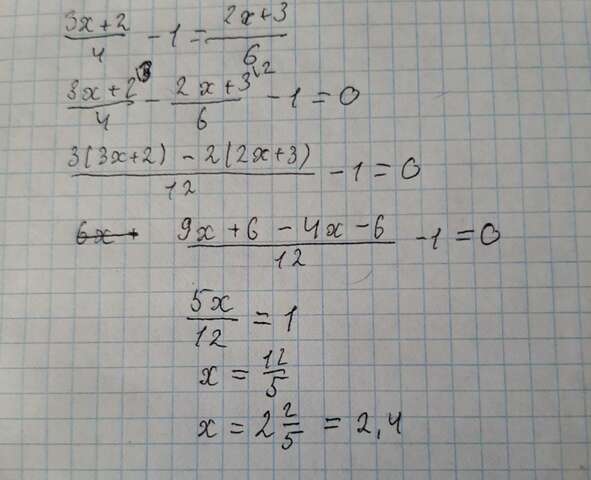 (3x+2)/4 - 1 = (2x+3)/6
(3x+2)\3/4 - (2x+3)\2/6 - 1 = 0
(3(3x+2) - 2(2x+3))/12 - 1 = 0
6x + (9x+6-4x-6)/12 - 1 = 0
5x/12 = 1
x = 12/5
x = 2 2/5 = 2,4